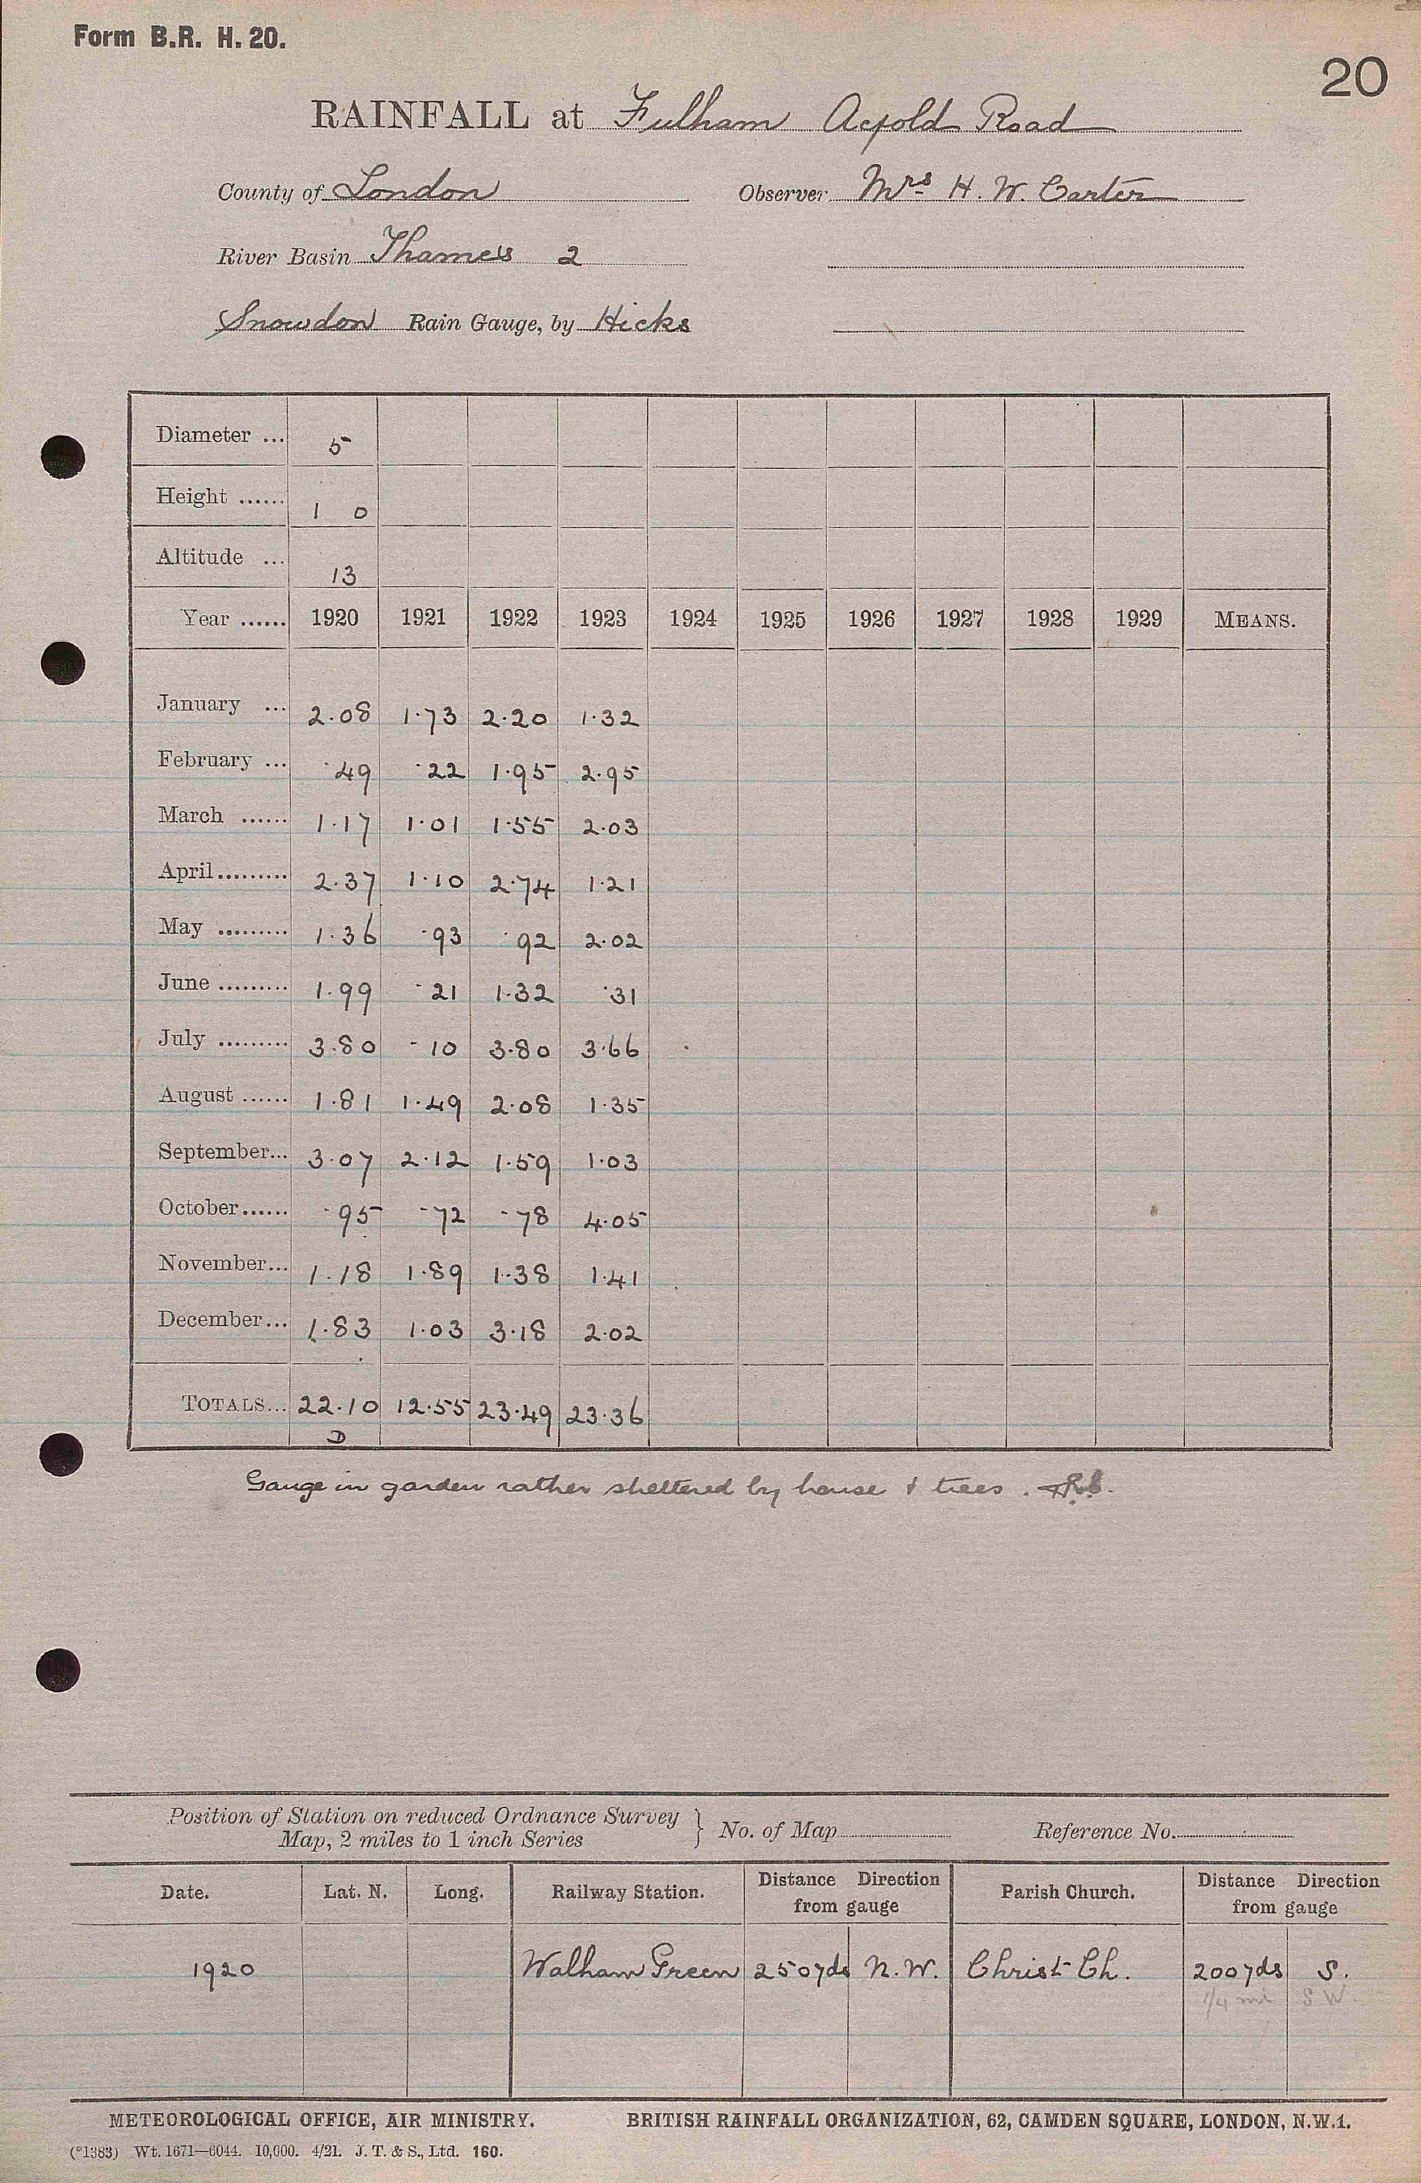 Form B.R. H. 20.
20
RAINFALL at Fulham Acfold Road
County of London Observer Mrs H. W. Carter
River Basin Thames 2
Snowdon Rain Gauge, by Hicks
Diameter ... 5
Height ...... 1 0
Altitude ... 13
Year ...... 1920 1921 1922 1923 1924 1925 1926 1927 1928 1929 MEANS.
January ... 2.08 1.73 2.20 1.32
February ... .49 .22 1.95 2.95
March ...... 1.17 1.01 1.55 2.03
April ......... 2.37 1.10 2.74 1.21
May ......... 1.36 .93 .92 2.02
June ......... 1.99 .21 1.32 .31
July ......... 3.80 .10 3.80 3.66
August ...... 1.81 1.49 2.08 1.35
September... 3.07 2.12 1.59 1.03
October...... .95 .72 .78 4.05
November... 1.18 1.89 1.38 1.41
December... 1.83 1.03 3.18 2.02
TOTALS... 22.10 12.55 23.49 23.36
D
Gauge in garden rather sheltered by house & trees.
Position of Station on reduced Ordnance Survey
Map, 2 miles to 1 inch Series } No. of Map Reference No.
Date. Lat. N. Long. Railway Station. Distance Direction from gauge Parish Church. Distance Direction from gauge
1920 Walham Green 250yds N.W. Christ Ch. 200yds S.
1/4 mi S W.
METEOROLOGICAL OFFICE, AIR MINISTRY. BRITISH RAINFALL ORGANIZATION, 62, CAMDEN SQUARE, LONDON, N.W.1.
(*1383) Wt. 1671—6044. 10,000. 4/21. J. T. & S., Ltd. 160.